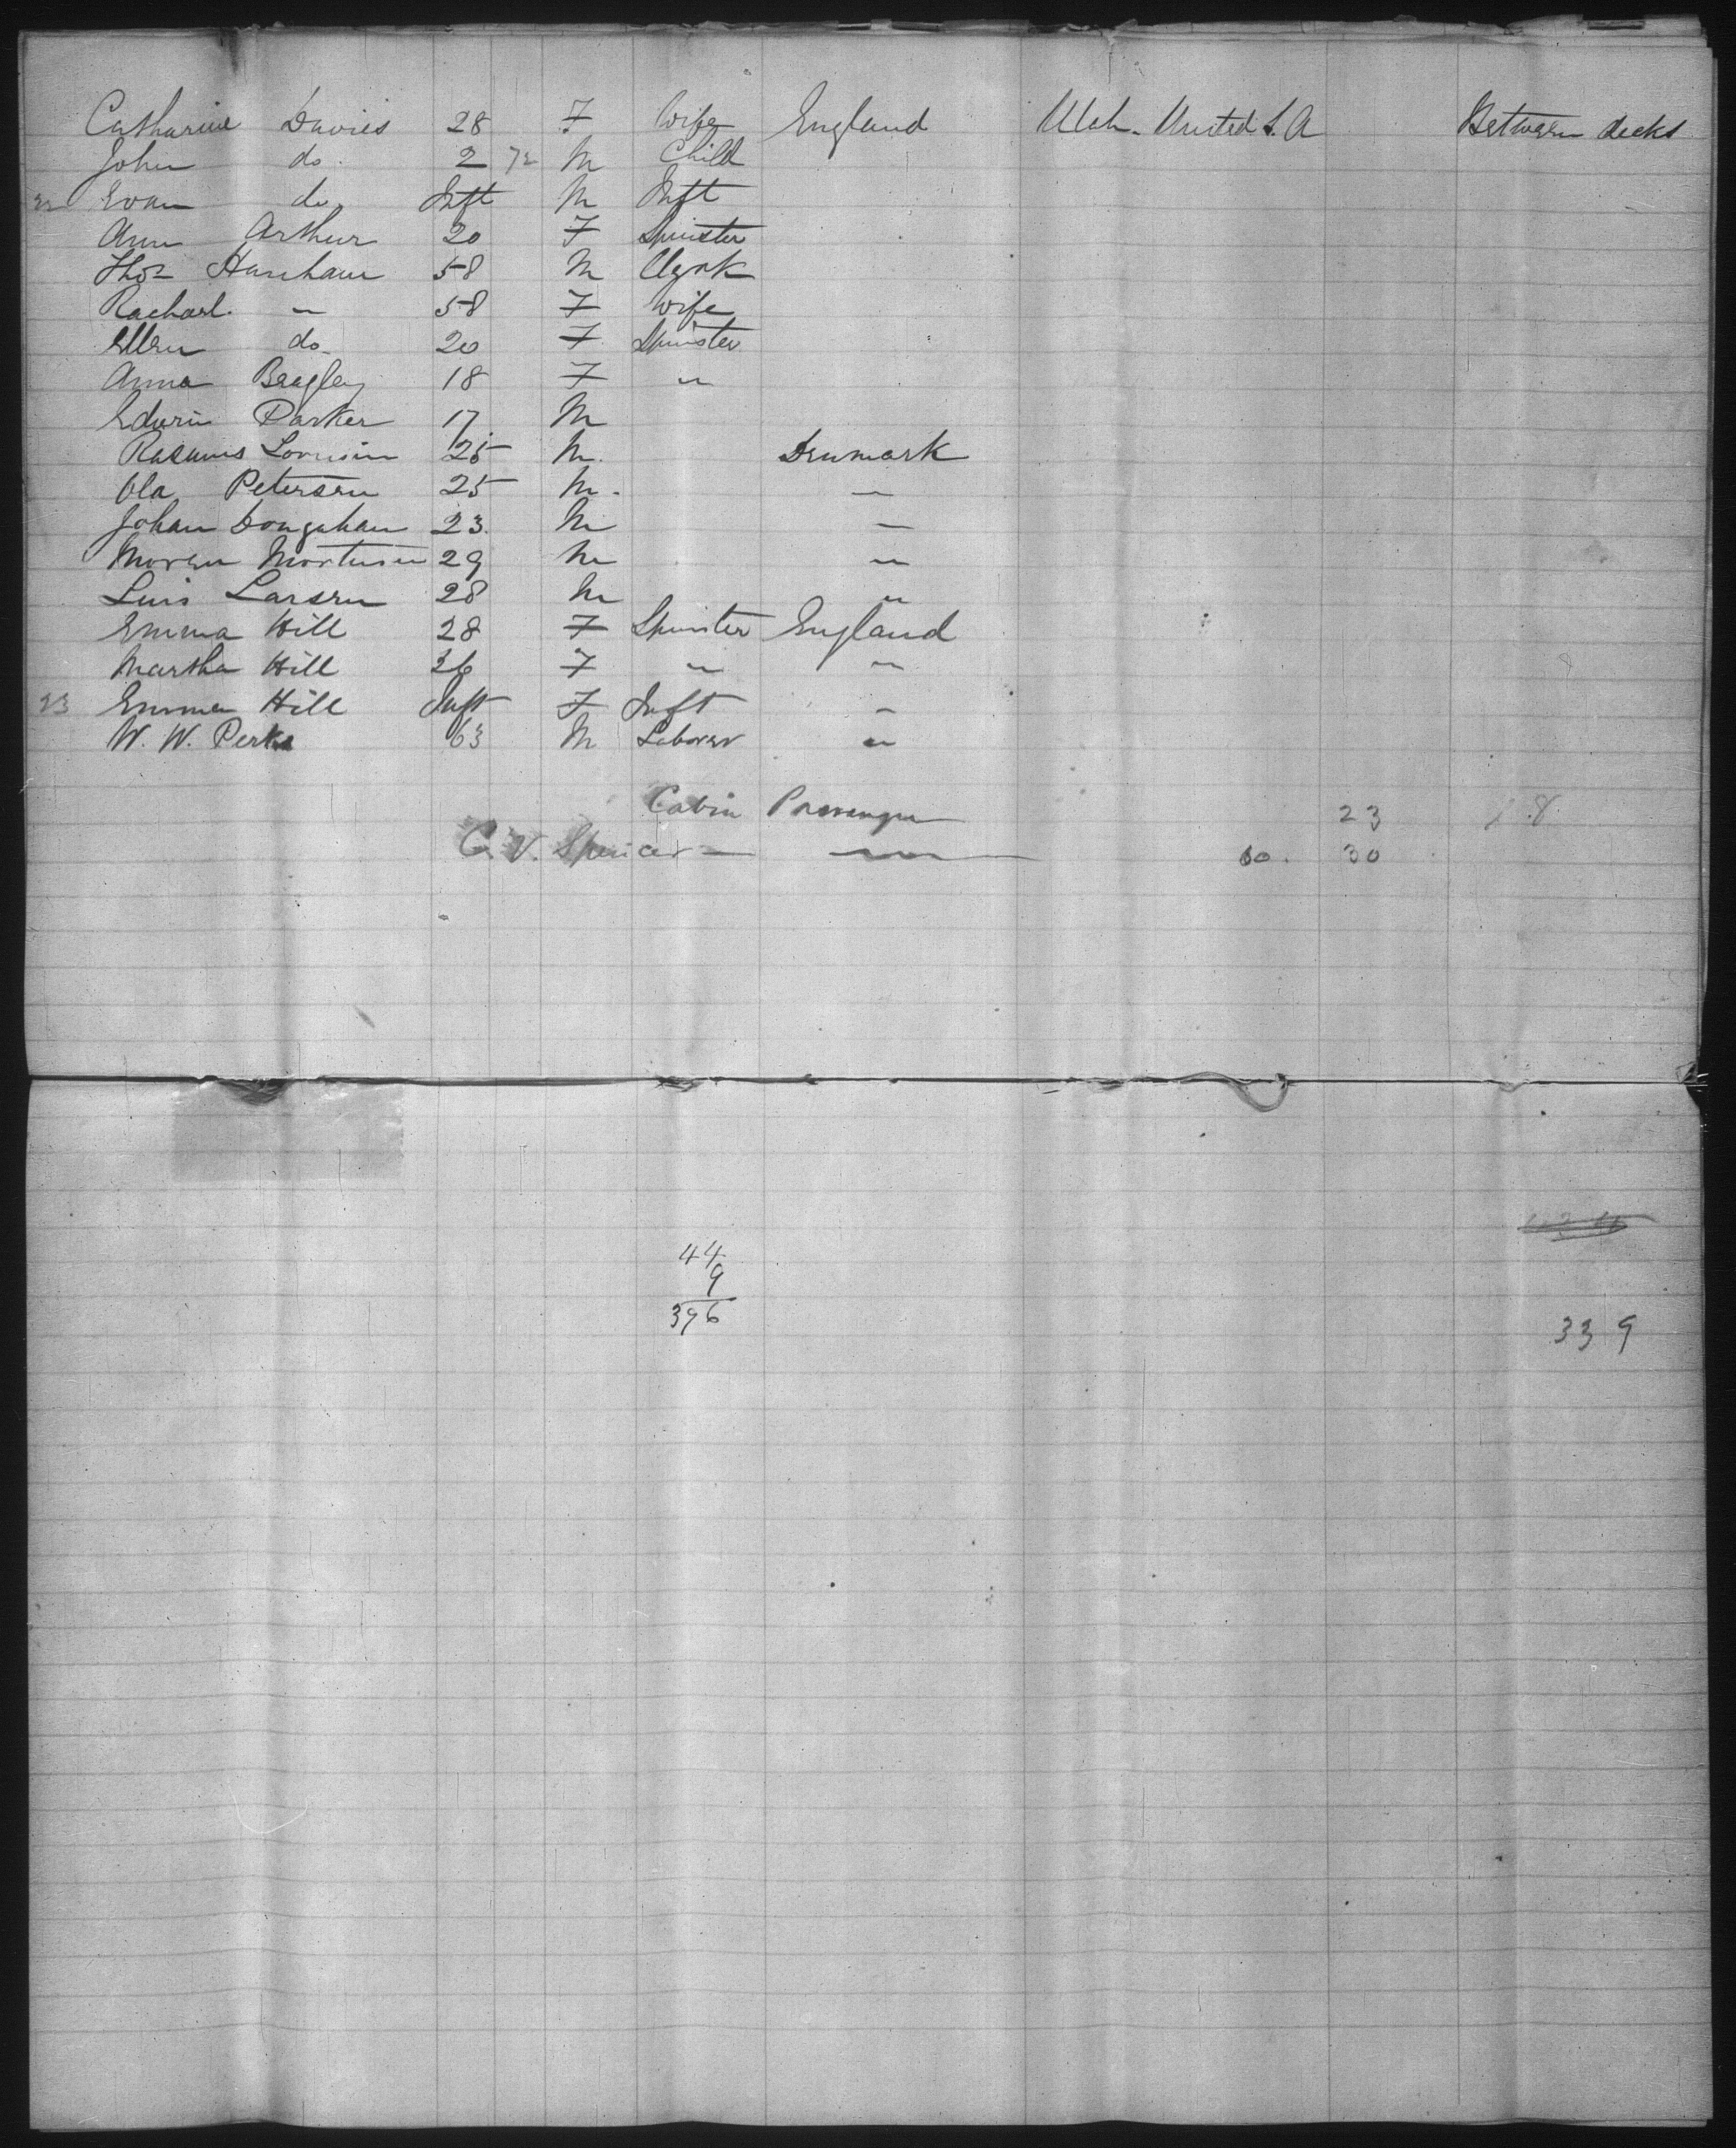 Catharine Davies 28 F Wife England Utah. United S. A Between decks
John do. 2 72 M Child
22 Evan do Inft M Inft
Ann Arthur 20 F Spinster
Thos Hanham 58 M Clerk
Rachael. " 58 F Wife
Ellen do. 20 F Spinster
Anna Bagley 18 F "
Edwin Parker 17 M
Rasmus 25 M. Denmark
Ola Petersen 25 M. "
Johan 23. M "
Mortensen 29 M "
Larsen 28 M "
Emma Hill 28 F Spinster England
Martha Hill 26 F " "
23 Emma Hill Inft F Inft "
W. W. Perks 63 M Laborer "
Cabin Passenger 23
C. V. Spencer — 60. 30
44
9
396
33 9